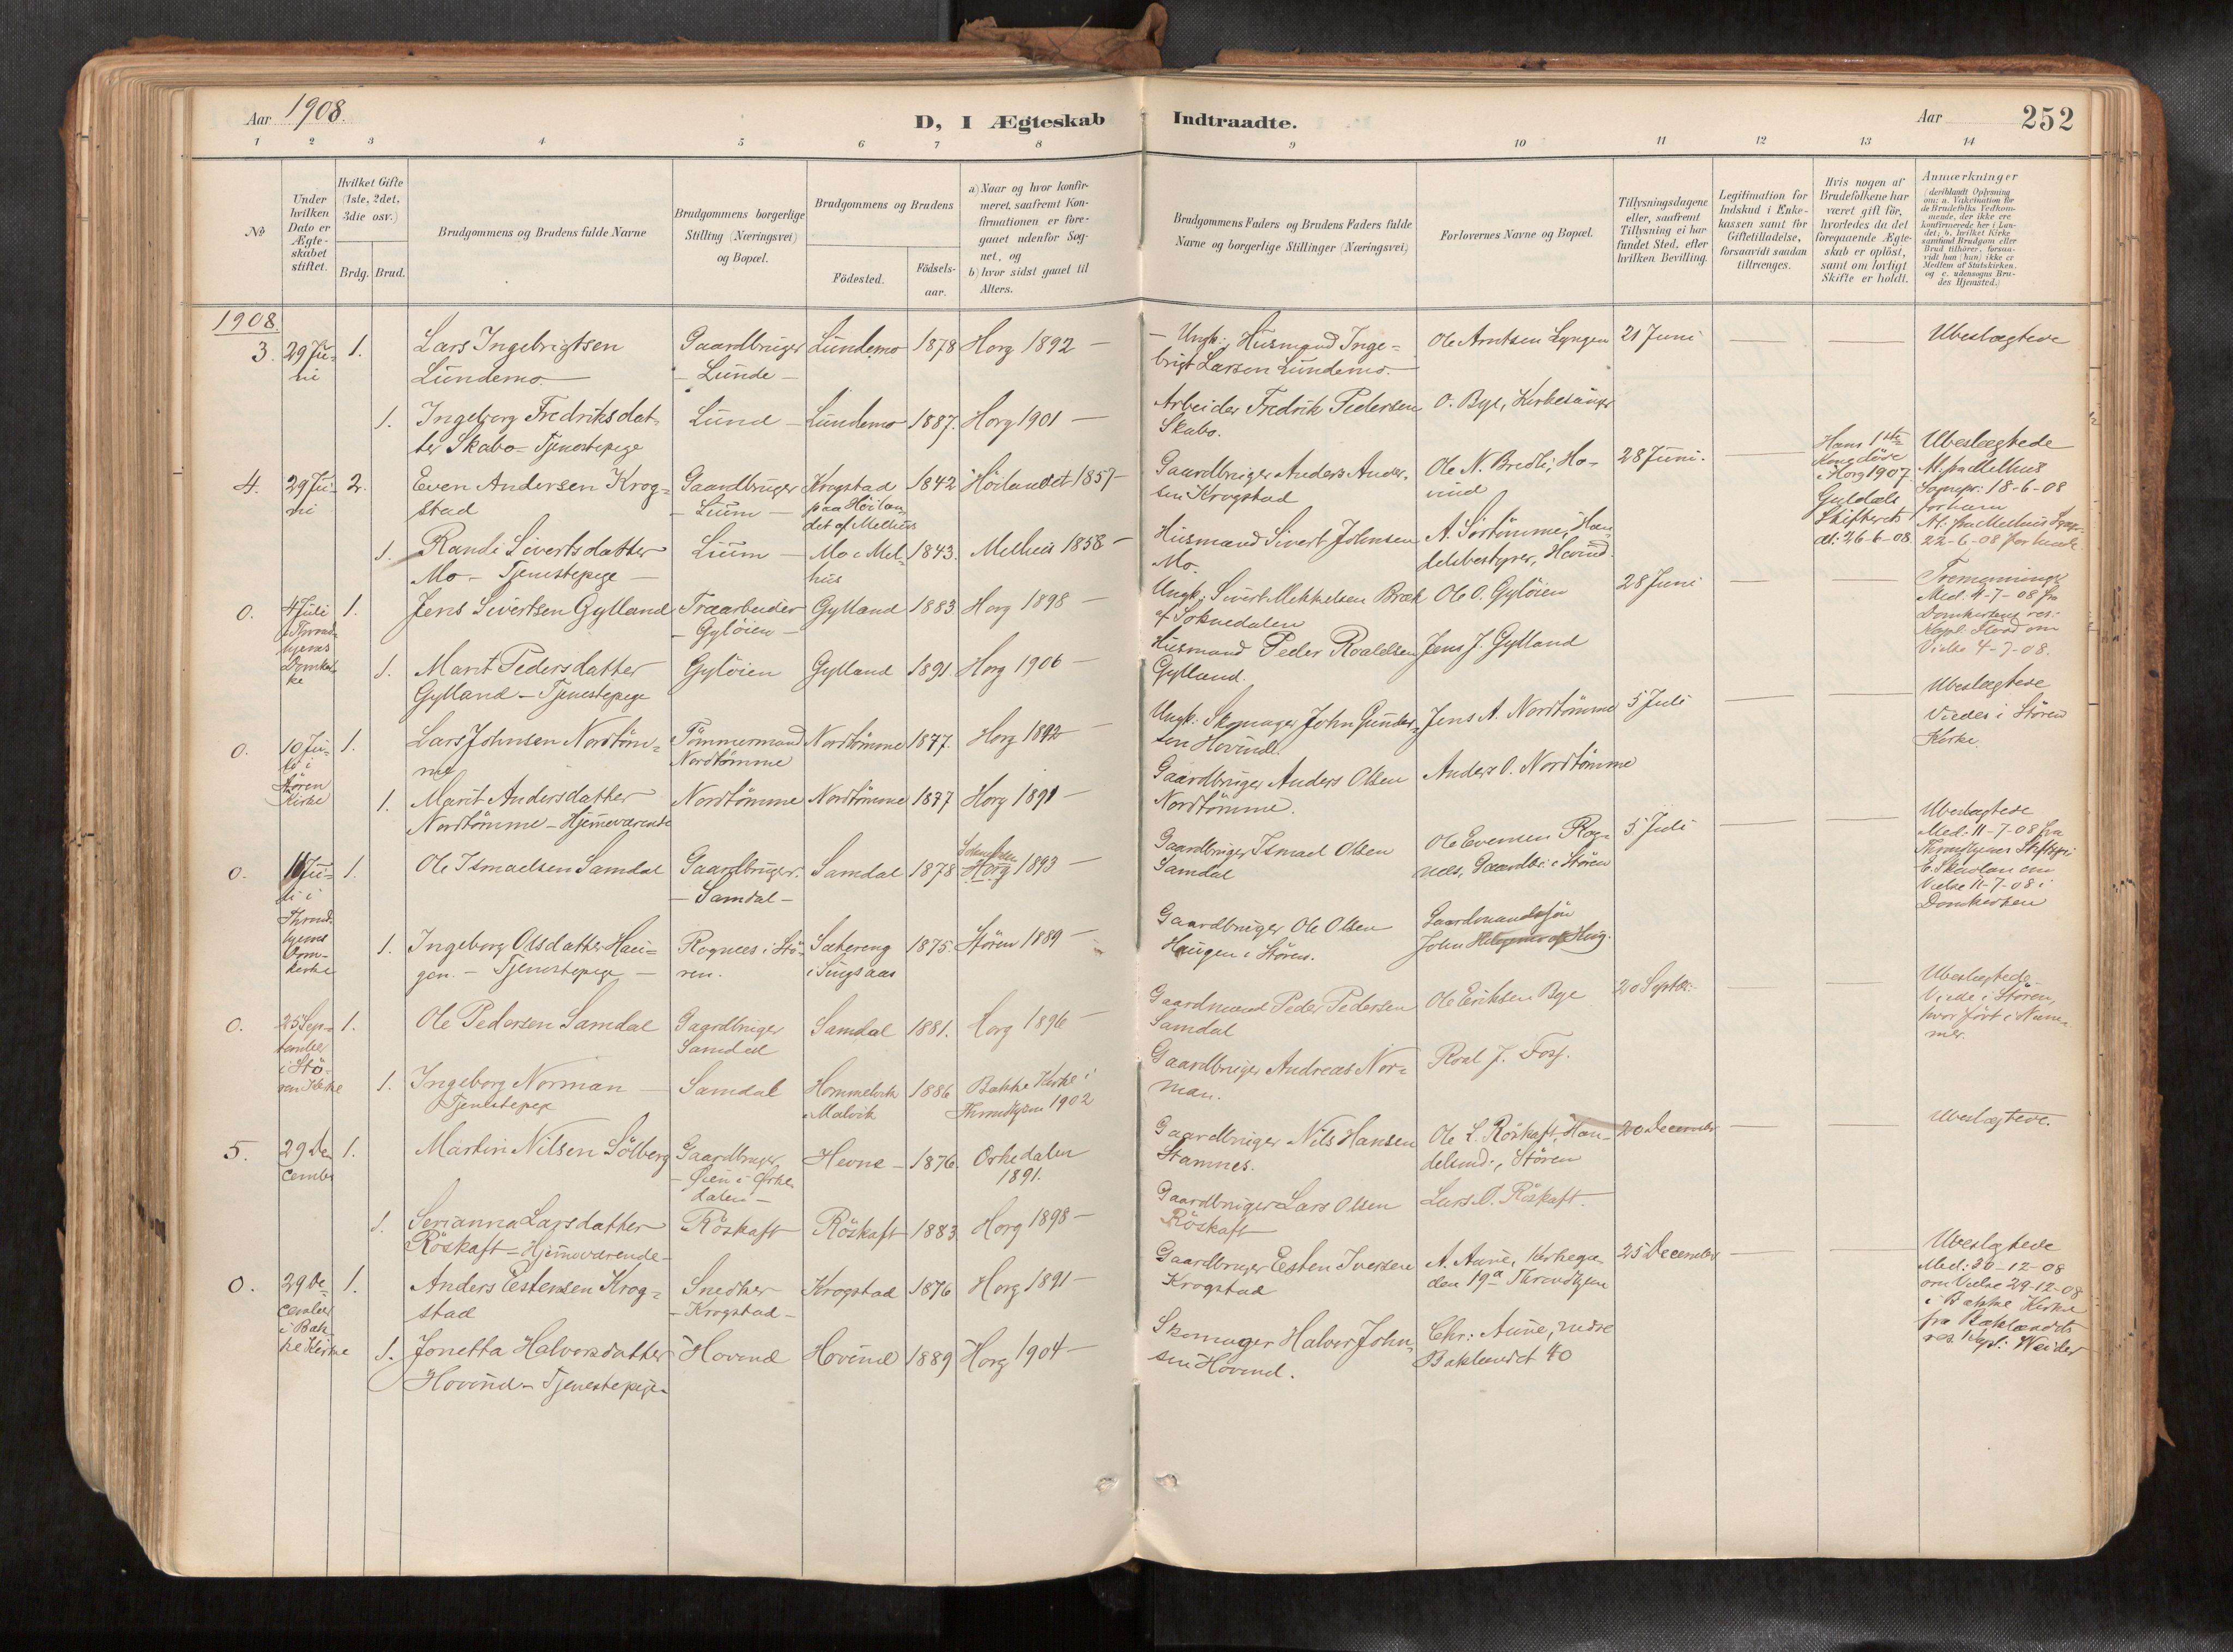 Aar 1908.
D, I Ægteskab
Indtraadte.
Aar
252
1 2 3 4 5 6 7 8 9 10 11 12 13 14
No
Under hvilken Dato er Ægteskabet stiftet.
Hvilket Gifte (1ste, 2det, 3die osv.)
Brdg. Brud.
Brudgommens og Brudens fulde Navne
Brudgommens borgerlige Stilling (Næringsvei) og Bopæl.
Brudgommens og Brudens
Födested.
Födsels-aar.
a) Naar og hvor konfirmeret, saafremt Konfirmationen er foregaaet udenfor Sognet, og
b) hvor sidst gaaet til Alters.
Brudgommens Faders og Brudens Faders fulde Navne og borgerlige Stillinger (Næringsvei)
Forlovernes Navne og Bopæl.
Tillysningsdagene eller, saafremt Tillysning ei har fundet Sted, efter hvilken Bevilling.
Legitimation for Indskud i Enkekassen samt for Giftetilladelse, forsaavidt saadan tiltrænges.
Hvis nogen af Brudefolkene har været gift för, hvorledes da det foregaaende Ægteskab er oplöst, samt om lovligt Skifte er holdt.
Anmærkninger
(deriblandt Oplysning om: a. Vakcination for de Brudefolks Vedkommende, der ikke ere konfirmerede her i Landet; b. hvilket Kirkesamfund Brudgom eller Brud tilhörer, forsaavidt han (hun) ikke er Medlem af Statskirken, og c. udensogns Brudes Hjemsted.)
1908.
3. 29 Juni 1. Lars Ingebrigtsen Lundemo Gaardbruger - Lunde - Lundemo 1878 Horg 1892 - Ungk: Husmand Ingebrigt Larsen Lundemo. Ole Arntsen Lyngen 21 Juni Ubeslægtede
1. Ingeborg Fredriksdatter Skabo - Tjenestepige Lund Lundemo 1887. Horg 1901 Arbeider Fredrik Pedersen Skabo. O. Bye, Kirkesanger
4. 29 Juni 2. Even Andersen Krogstad Gaardbruger - Luum - Krogstad paa Höilandet af Melhus 1842 Höilandet 1857 Gaardbruger Anders Andersen Krogstad Ole N. Bredli, Hovind 28 Juni. Hans 1ste Kone döde i Horg 1907. Guldals Skifterets at: 26-6-08 Ubeslægtede At. fra Melhus Sognepr: 18-6-08 for ham At: fra Melhus 22-6-08 for hende
1. Randi Sivertsdatter Mo - Tjenestepige Luum Mo i Melhus 1843. Melhus 1858 Husmand Sivert Johnsen Mo. A. Sörtömme, Handelsbestyrer, Hovind
0. 4 Juli i Throndhjems Domkirke 1. Jens Sivertsen Gylland Træarbeider - Gylöien - Gylland 1883 Horg 1898 Ungk: Sivert Mikkelsen Bræk af Soknedalen Ole O. Gylöien 28 Juni Tremenninge Med. 4-7-08 fra Domkirkens res: Kapl. om Vielse 4-7-08.
1. Marit Pedersdatter Gylland - Tjenestepige Gylöien Gylland 1891. Horg 1906 Husmand Peder Roaldsen Gylland. Jens J. Gylland
0. 10 Juli i Stören Kirke 1. Lars Johnsen Nordtömme Tömmermand Nordtömme Nordtömme 1877. Horg 1892 Ungk: Skomager John Gundersen Hovind. Jens A. Nordtömme 5 Juli Ubeslægtede Viedes i Stören Kirke.
1. Marit Andersdatter Nordtömme - Hjemmeværende Nordtömme Nordtömme 1877 Horg 1891 Gaardbruger Anders Olsen Nordtömme. Anders O. Nordtömme
0. 11 Juli i Throndhjems Domkirke 1. Ole Ismaelsen Samdal Gaardbruger. - Samdal - Samdal 1878 Horg 1893 Gaardbruger Ismael Olsen Samdal Ole Evensen Rognæs, Gaardbr: i Stören 5 Juli Ubeslægtede Med: 11-7-08 fra Throndhjems Stiftspr: E. Skavlan om Vielse 11-7-08 i Domkirken
1. Ingeborg Olsdatter Haugen. - Tjenestepige Rognæs i Stören. Sætereng i Singsaas 1875. Stören 1889 Gaardbruger Ole Olsen Haugen i Stören. Gaardmandssön John
0. 25 September i Stören Kirke 1. Ole Pedersen Samdal Gaardbruger Samdal Samdal 1881. Horg 1896 Gaardmand Peder Pedersen Samdal Ole Eriksen Bye 20 Septbr. Ubeslægtede Viede i Stören, hvor fört i Nummer.
1. Ingeborg Norman Tjenestepige Samdal Hommelvik i Malvik 1886 Bakke Kirke i Throndhjem 1902 Gaardbruger Andreas Norman. Roal J. Foss.
5. 29 December 1. Martin Nilsen Sölberg Gaardbruger - Öien i Orkedalen - Hevne 1876. Orkedalen 1891. Gaardbruger Nils Hansen Stamnes. Ole L. Röskaft, Handelsmd:, Stören 20 December Ubeslægtede.
1. Serianna Larsdatter Röskaft - Hjemmeværende Röskaft Röskaft 1883 Horg 1898 Gaardbruger Lars Olsen Röskaft Lars O. Röskaft
0. 29 December i Bakke Kirke 1. Anders Estensen Krogstad Snedker - Krogstad - Krogstad 1876 Horg 1891 Gaardbruger Esten Iversen Krogstad A. Aune, Kirkegaden 19a Throndhjem 25 December Ubeslægtede Med: 30-12-08 om Vielse 29-12-08 i Bakke Kirke fra Baklandets res. Kapl: Weider
1. Jonetta Halvorsdatter Hovind - Tjenestepige Hovind Hovind 1889 Horg 1904 Skomager Halvor Johnsen Hovind. Chr: Aune, nedre Baklandet 40